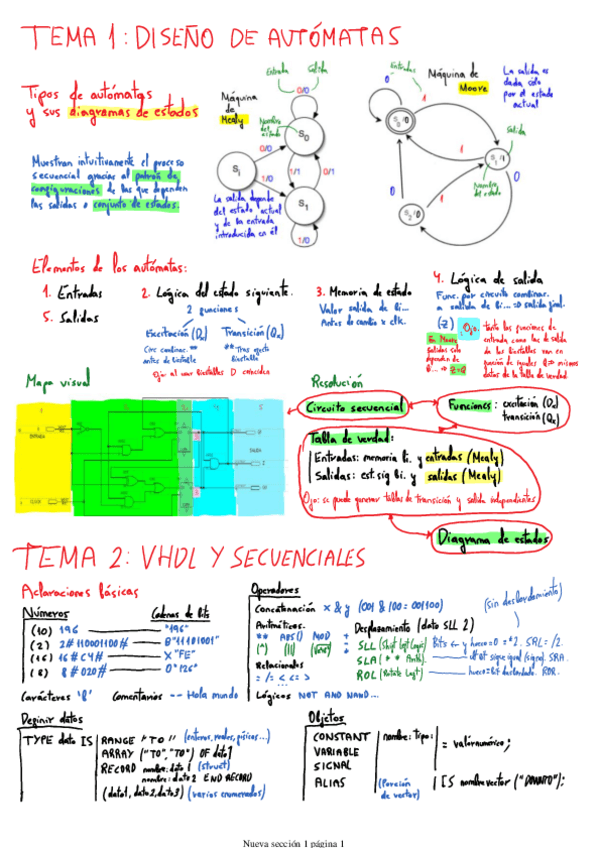 TEMA 1: DISEÑO DE AUTÓMATAS
Tipos de autómatas
y sus diagramas de estados
Muestran intuitivamente el proceso
secuencial gracias al patrón de
configuraciones de las que dependen
las salidas o conjunto de estados.
Máquina
de
Mealy
Entrada
Salida
0/0
Nombre
del
estado
S0
Si
0/0
1/0
1/1
0/1
S1
1/0
La salida depende
del estado actual
y de la entrada
introducida en él
Máquina de
Moore
La salida es
dada sólo
por el estado
actual
Entradas
0
1
S0/0
1
Salida
S1/1
Nombre
del estado
0
1
0
S2/0
Elementos de los autómatas:
1. Entradas
5. Salidas
2. Lógica del estado siguiente.
2 funciones
Excitación (Dx)
Transición (Qx)
Circ combinac.
antes de biestable
** Tras efecto
biestable
Ojo al usar biestables D coinciden
3. Memoria de estado
Valor salida de bi...
Antes de cambio x clk.
4. Lógica de salida
Func. por circuito combinac.
a salida de bi... => salida final.
(Z)
Ojo.
tanto las funciones de
entrada como las de salida
de los biestables van en
función de
datos de la tabla de verdad.
En
salidas solo
dependen de
bi... => Z=Q
Mapa visual
Resolución
Circuito secuencial
Funciones: excitación (Dx)
transición (Qx)
Tabla de verdad:
Entradas: memoria bi. y entradas (Mealy)
Salidas: est.sig bi. y salidas (Mealy)
Ojo: se puede generar tablas de transición y salida independientes
Diagrama de estados
TEMA 2: VHDL Y SECUENCIALES
Aclaraciones básicas
Números
Cadenas de bits
(10) 196
"196"
(2) 2#11000100#
B"11101001"
(16) 16#C4#
X"FE"
(8) 8#020#
O"126"
Carácteres '8'
Comentarios -- Hola mundo
Operadores
Concatenación x & y (001 & 100 = 001100)
Aritméticos.
** ABS() MOD
Relacionales
= /= < <= >
...
Lógicos NOT AND NAND...
Desplazamiento (dato SLL 2)
(sin desbordamiento)
SLL (Shift Left Logic)
SLA
ROL (Rotate Left)
Definir datos
TYPE dato IS
RANGE "TO" (enteros, reales, físicos...)
ARRAY ("TO","TO") OF dato1
RECORD nombre: dato1 (struct)
nombre: dato2 END RECORD
(dato1, dato2, dato3) (varios enumerados)
Objetos
CONSTANT
VARIABLE
SIGNAL
nombre: tipo:
= valor numérico;
ALIAS
(Porción
de vector)
IS nombre vector ("DOWNTO");
Nueva sección 1 página 1